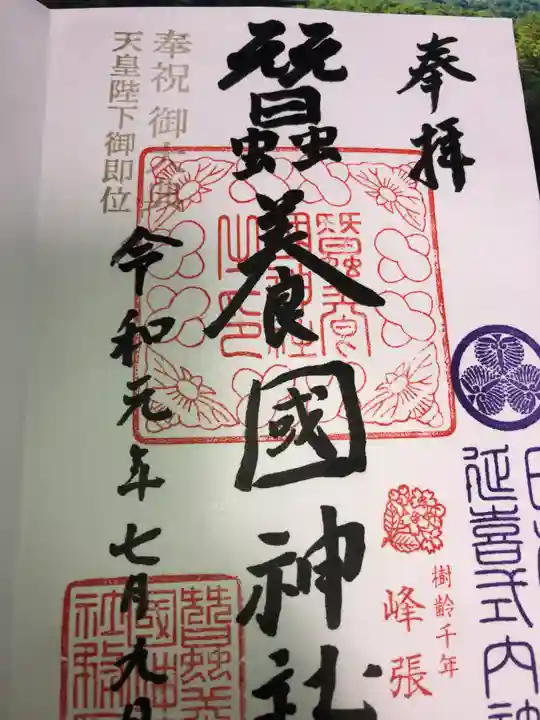 奉拝
延喜式内
樹齢千年
峰張
蠶養國神社
奉祝 御大典
天皇陛下御即位
令和元年七月九日